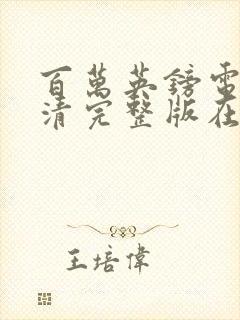 百萬英鎊電
清完整版在
王培偉